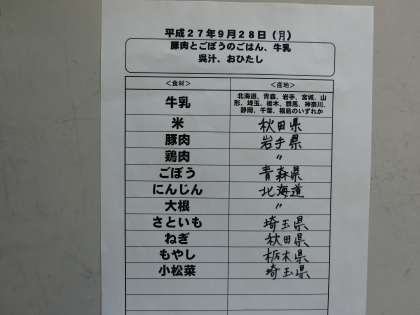 平成27年9月28日（月）
豚肉とごぼうのごはん、牛乳
呉汁、おひたし
＜食材＞ ＜産地＞
牛乳 北海道、青森、岩手、宮城、山
形、埼玉、栃木、群馬、神奈川、
静岡、千葉、福島のいずれか
米 秋田県
豚肉 岩手県
鶏肉 〃
ごぼう 青森県
にんじん 北海道
大根 〃
さといも 埼玉県
ねぎ 秋田県
もやし 栃木県
小松菜 埼玉県